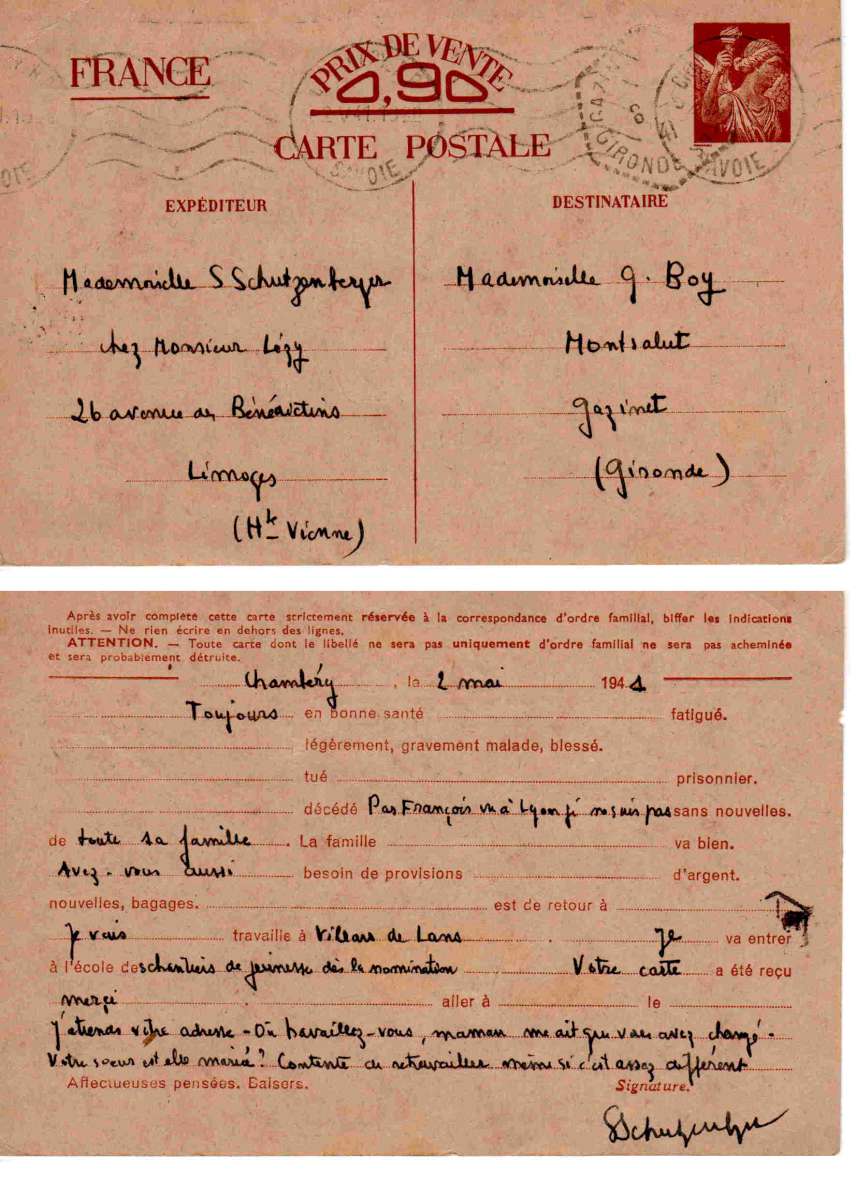 FRANCE
PRIX DE VENTE
0,90
CARTE POSTALE
GIRONDE
SAVOIE
SAVOIE
EXPÉDITEUR
DESTINATAIRE
Mademoiselle S Schutzenberger
chez Monsieur Lézy
26 avenue des Bénédictins
Limoges
(Hte Vienne)
Mademoiselle G. Boy
Montsalut
Gazinet
(Gironde)
Après avoir complété cette carte strictement réservée à la correspondance d'ordre familial, biffer les indications
inutiles. — Ne rien écrire en dehors des lignes.
ATTENTION. — Toute carte dont le libellé ne sera pas uniquement d'ordre familial ne sera pas acheminée
et sera probablement détruite.
Chambéry, le 2 mai 1941
Toujours en bonne santé fatigué.
légèrement, gravement malade, blessé.
tué prisonnier.
décédé Pas François vu à Lyon je ne suis pas sans nouvelles.
de toute sa famille. La famille va bien.
Avez-vous aussi besoin de provisions d'argent.
nouvelles, bagages. est de retour à
Je vais travaille à Villars de Lans. Je va entrer
à l'école des chantiers de jeunesse dès la nomination Votre carte a été reçu
merci. aller à le
J'attends votre adresse - Où travaillez-vous, maman me dit que vous avez changé -
Votre soeur est elle mariée? Contente de retravailler même si c'est assez différent
Affectueuses pensées. Baisers. Signature.
SSchutzenberger